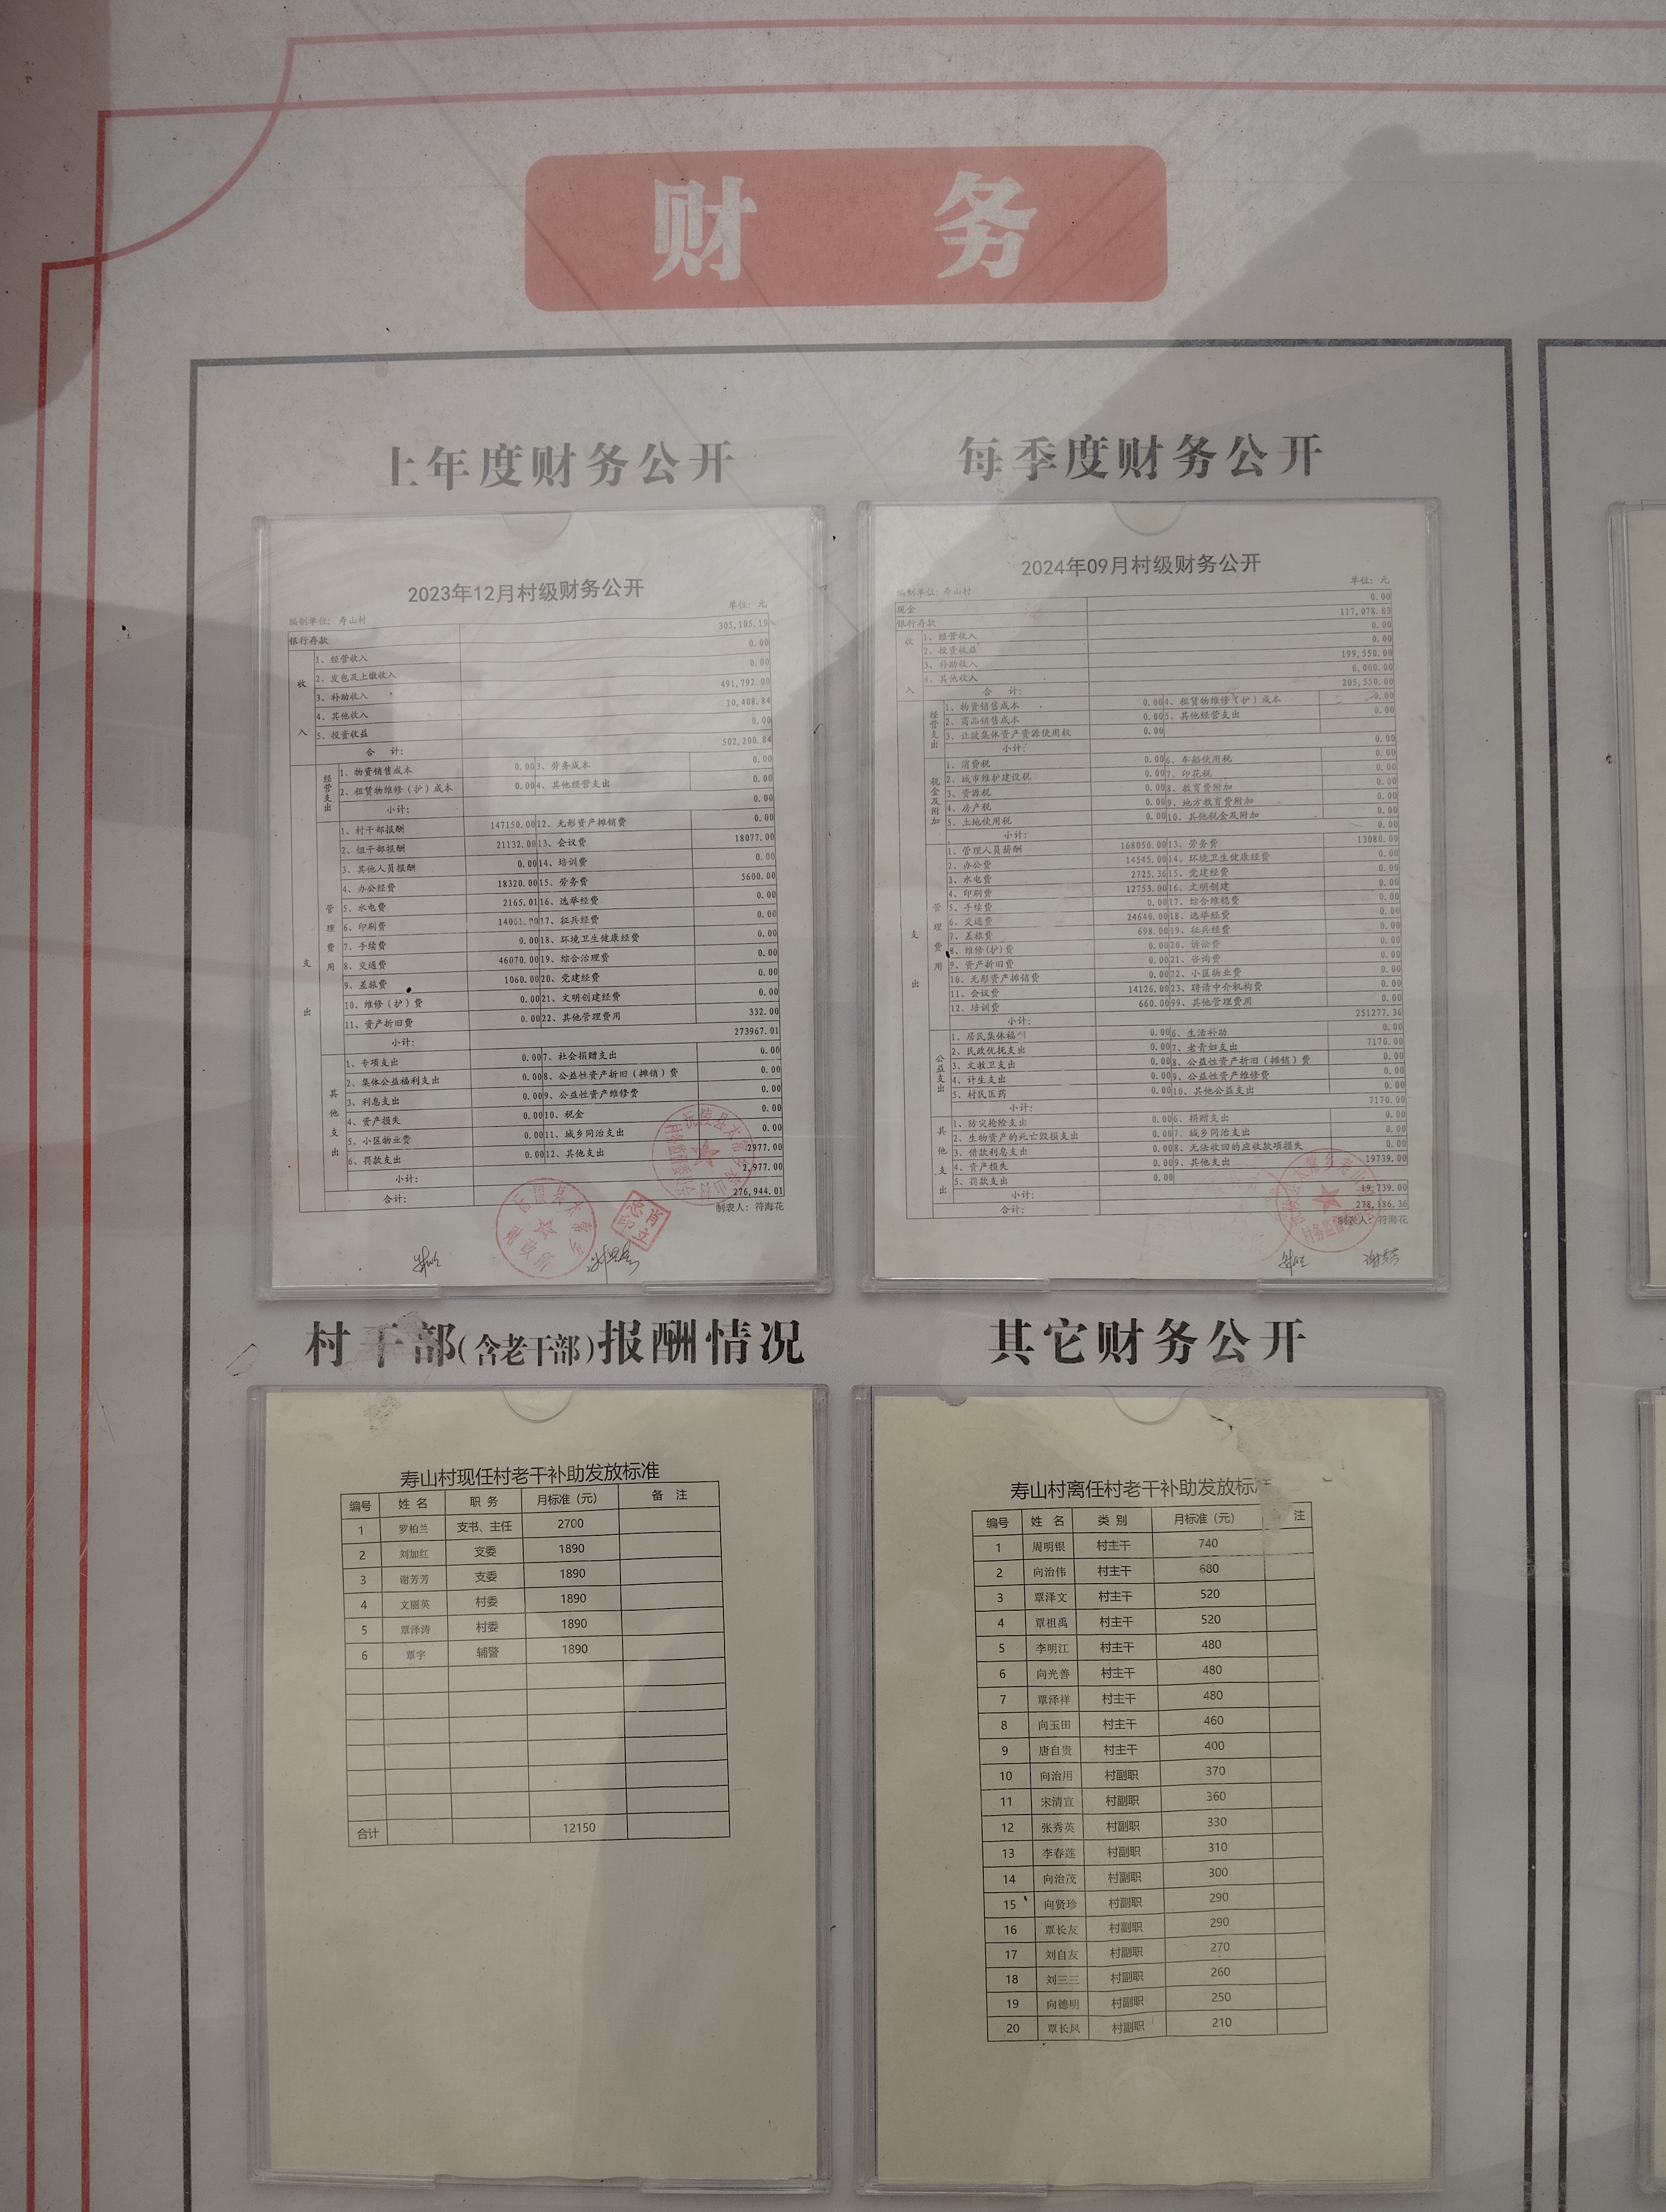 财 务
上年度财务公开
2023年12月村级财务公开
编制单位: 寿山村 单位: 元
银行存款 305,105.19
收入
1、经营收入 0.00
2、发包及上缴收入 0.00
3、补助收入 491,792.00
4、其他收入 10,408.84
5、投资收益 0.00
合 计: 502,200.84
支出
经营支出
1、物资销售成本 0.00 3、劳务成本 0.00
2、租赁物维修(护)成本 0.00 4、其他经营支出 0.00
小计: 0.00
管理费用
1、村干部报酬 147150.00 12、无形资产摊销费 0.00
2、组干部报酬 21132.00 13、会议费 18077.00
3、其他人员报酬 0.00 14、培训费 0.00
4、办公经费 18320.00 15、劳务费 5600.00
5、水电费 2165.01 16、选举经费 0.00
6、印刷费 14061.00 17、征兵经费 0.00
7、手续费 0.00 18、环境卫生健康经费 0.00
8、交通费 46070.00 19、综合治理费 0.00
9、差旅费 1060.00 20、党建经费 0.00
10、维修(护)费 0.00 21、文明创建经费 0.00
11、资产折旧费 0.00 22、其他管理费用 332.00
小计: 273967.01
其他支出
1、专项支出 0.00 7、社会捐赠支出 0.00
2、集体公益福利支出 0.00 8、公益性资产折旧(摊销)费 0.00
3、利息支出 0.00 9、公益性资产维修费 0.00
4、资产损失 0.00 10、税金 0.00
5、小区物业费 0.00 11、城乡同治支出 0.00
6、罚款支出 0.00 12、其他支出 2977.00
小计: 2,977.00
合计: 276,944.01
制表人: 符海花
每季度财务公开
2024年09月村级财务公开
编制单位: 寿山村 单位: 元
现金 0.00
银行存款 117,078.83
收入
1、经营收入 0.00
2、投资收益 0.00
3、补助收入 199,550.00
4、其他收入 6,000.00
合 计: 205,550.00
支出
经营支出
1、物资销售成本 0.00 4、租赁物维修(护)成本 0.00
2、商品销售成本 0.00 5、其他经营支出 0.00
3、让渡集体资产资源使用权 0.00
小计: 0.00
税金及附加
1、消费税 0.00 6、车船使用税 0.00
2、城市维护建设税 0.00 7、印花税 0.00
3、资源税 0.00 8、教育费附加 0.00
4、房产税 0.00 9、地方教育费附加 0.00
5、土地使用税 0.00 10、其他税金及附加 0.00
小计: 0.00
管理费用
1、管理人员薪酬 168050.00 13、劳务费 13080.00
2、办公费 14545.00 14、环境卫生健康经费 0.00
3、水电费 2725.36 15、党建经费 0.00
4、印刷费 12753.00 16、文明创建 0.00
5、手续费 0.00 17、综合维稳费 0.00
6、交通费 24640.00 18、选举经费 0.00
7、差旅费 698.00 19、征兵经费 0.00
8、维修(护)费 0.00 20、诉讼费 0.00
9、资产折旧费 0.00 21、咨询费 0.00
10、无形资产摊销费 0.00 22、小区物业费 0.00
11、会议费 14126.00 23、聘请中介机构费 0.00
12、培训费 660.00 99、其他管理费用 0.00
小计: 251277.36
公益支出
1、居民集体福利 0.00 6、生活补助 0.00
2、民政优抚支出 0.00 7、老青妇支出 7170.00
3、文教卫支出 0.00 8、公益性资产折旧(摊销)费 0.00
4、计生支出 0.00 9、公益性资产维修费 0.00
5、村民医药 0.00 10、其他公益支出 0.00
小计: 7170.00
其他支出
1、防灾抢险支出 0.00 6、捐赠支出 0.00
2、生物资产的死亡毁损支出 0.00 7、城乡同治支出 0.00
3、借款利息支出 0.00 8、无法收回的应收款项损失 0.00
4、资产损失 0.00 9、其他支出 19739.00
5、罚款支出 0.00
小计: 19,739.00
合计: 278,186.36
制表人: 符海花
村干部(含老干部)报酬情况
寿山村现任村老干补助发放标准
编号 姓 名 职 务 月标准(元) 备 注
1 罗柏兰 支书、主任 2700
2 刘加红 支委 1890
3 谢芳芳 支委 1890
4 文丽英 村委 1890
5 覃泽涛 村委 1890
6 覃宇 辅警 1890
合计 12150
其它财务公开
寿山村离任村老干补助发放标
编号 姓 名 类 别 月标准(元) 注
1 周明银 村主干 740
2 向治伟 村主干 680
3 覃泽文 村主干 520
4 覃祖禹 村主干 520
5 李明江 村主干 480
6 向光善 村主干 480
7 覃泽祥 村主干 480
8 向玉田 村主干 460
9 唐自贵 村主干 400
10 向治用 村副职 370
11 宋清宣 村副职 360
12 张秀英 村副职 330
13 李春莲 村副职 310
14 向治茂 村副职 300
15 向贤珍 村副职 290
16 覃长友 村副职 290
17 刘自友 村副职 270
18 刘三三 村副职 260
19 向德明 村副职 250
20 覃长凤 村副职 210